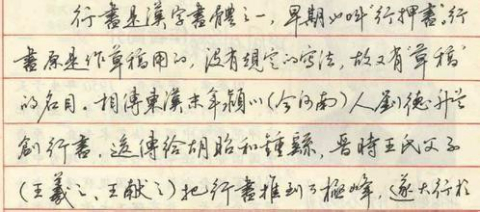 行書是漢字書體之一，早期叫"行押書"，行
書原是作草稿用的，沒有規定的寫法，故又有"草稿"
的名目。相傳東漢末年潁川（今河南）人劉德升首
創行書，送傳給胡昭和鍾繇，晉時王氏父子
（王羲之、王献之）把行書推到了極峰，遂大行於